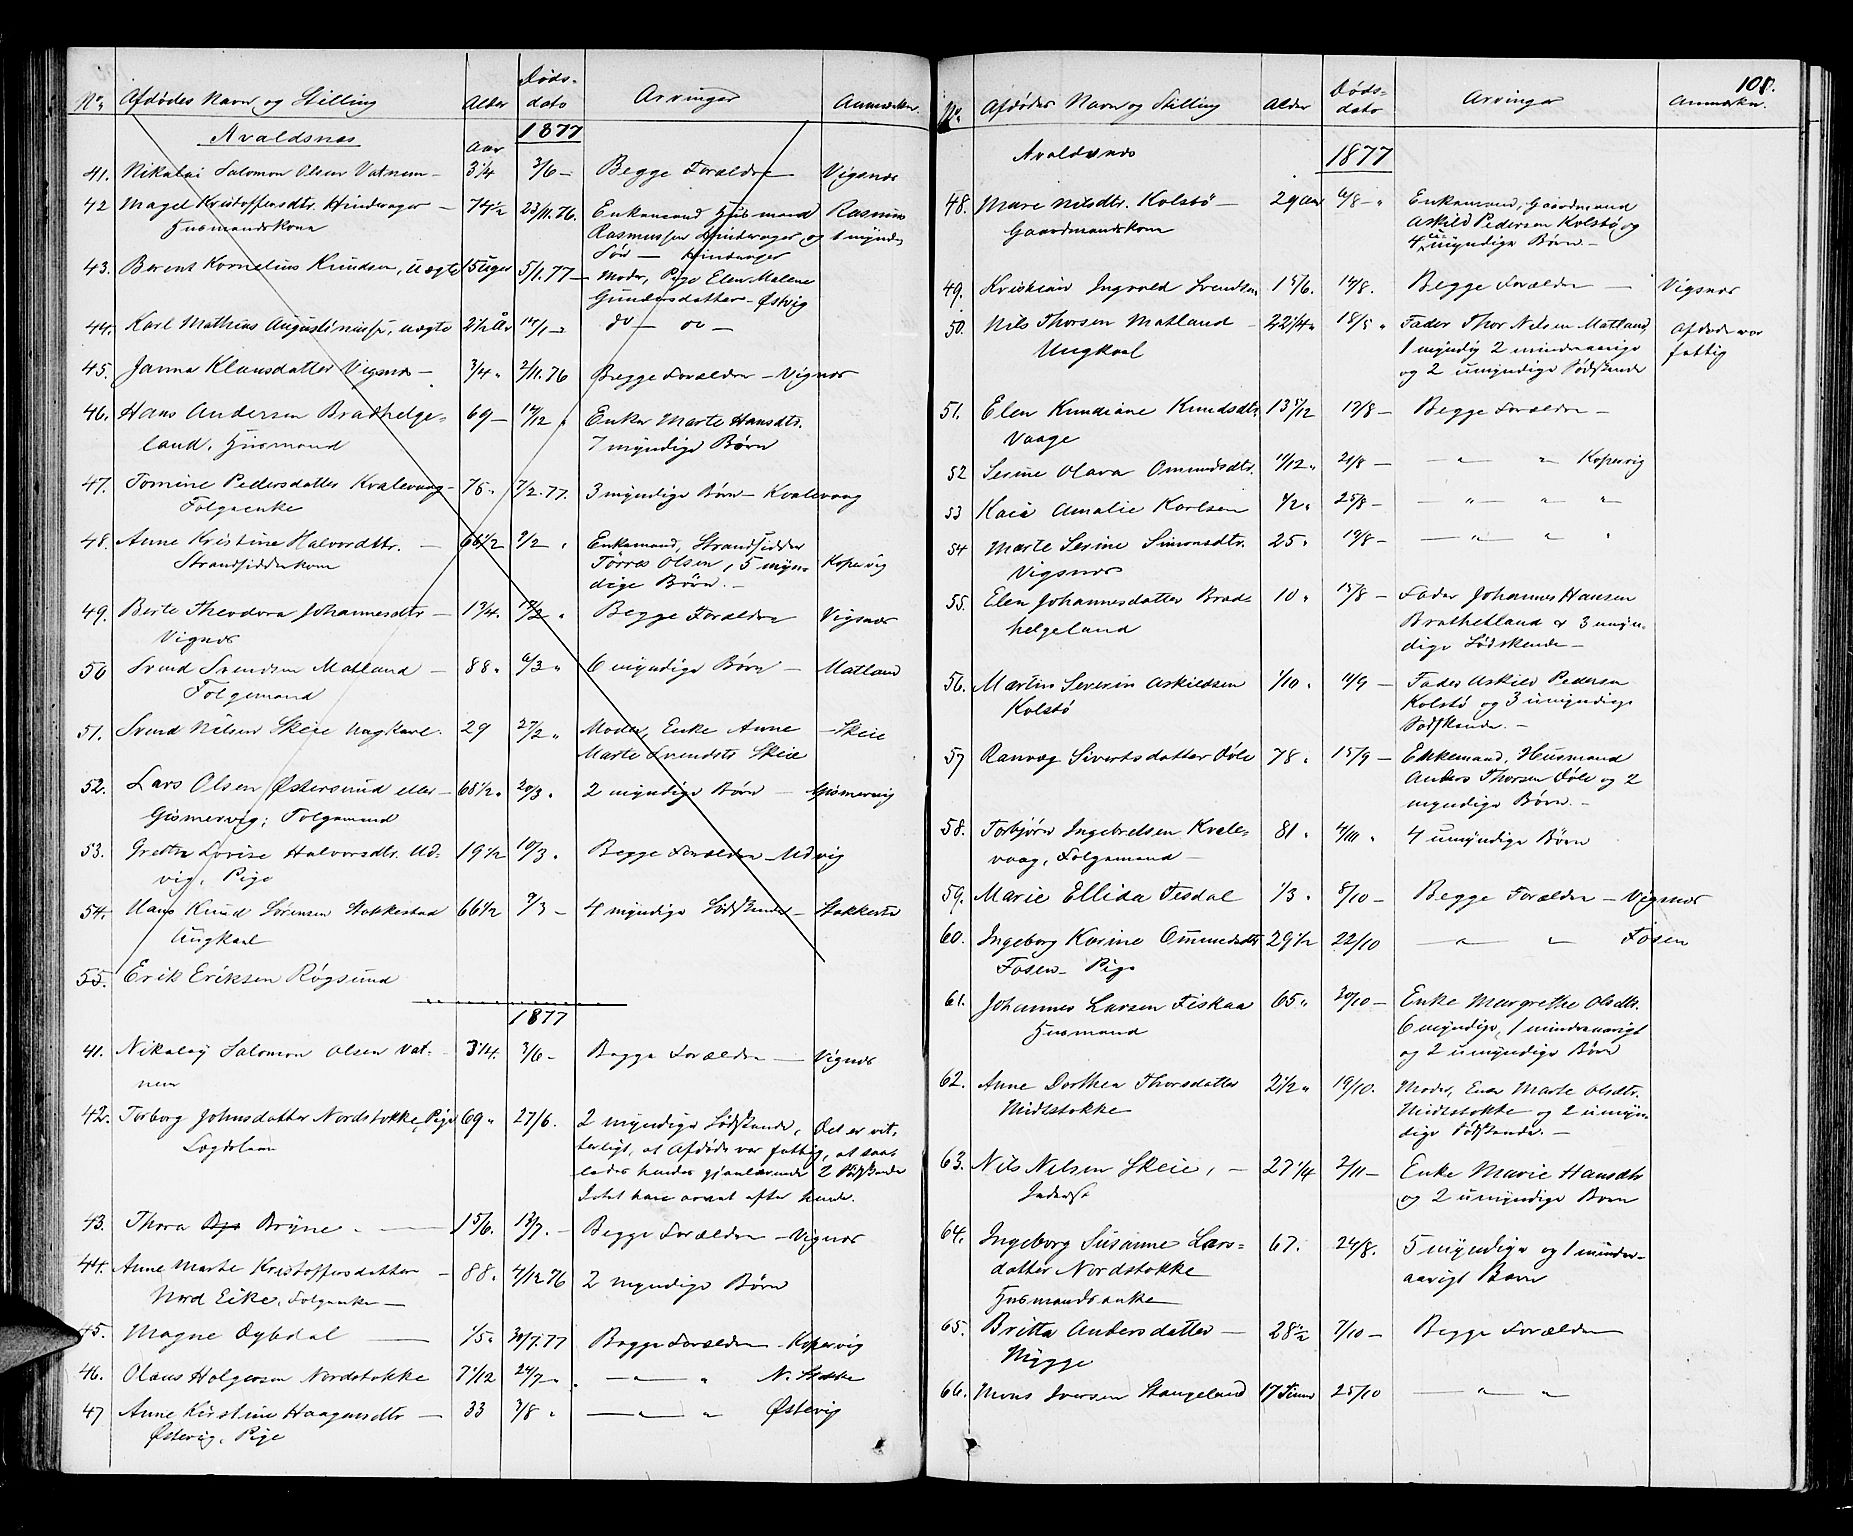 No. Afdødes Navn og Stilling Alder Døds-dato Arvinger Anmærkn.
Avaldsnes Aar 1877
41. Nikolai Salomon Olsen Vatnem — 3 1/4 3/6 — Begge Forældre Vigsnæs
42 Magel Kristoffersdtr. Hinderager — 74 1/2 23/11.76. Enkemand Husmand Rasmus
Husmandskone Rasmussen Hinderager og 1 myndig
Søn — Hinderager
43. Berent Kornelius Knudsen, uægte 15 uger 5/1.77 — Moder, Pige Elen Malene
Gundersdatter Østvig
44. Karl Mathias Augustinussen, uægte 2 1/2 År 14/1 do — do —
45. Janna Klausdatter Vigsnæs — 3/4 " 2/11.76 Begge Forældre — Vignæs
46. Hans Andersen Brathelge- 69 — 14/12 " Enke Marte Hansdtr.
land, Husmand 7 myndige Børn
47. Tomine Pedersdatter Kvalevaag — 75 " 7/2.77. 3 myndige Børn — Kvalevaag
Folgeenke
48. Anne Kristine Halvordtr. — 66 1/2 2/2 " Enkemand, Strandsidder
Strandsidderkone Tørres Olsen, 5 myn- Kopervig
dige Børn. —
49. Berte Theodora Johannesdtr — 1 3/4. 12/2 " Begge Forældre Vigsnæs
Vignæs
50 Svend Svendsen Matland — 88 " 6/3 " 6 myndige Børn — Matland
Folgemand
51. Svend Nilsen Skeie Ungkarl. 29 27/2 " Moder, Enke Anne — Skeie
Marte Svendsdtr Skeie
52. Lars Olsen Østersund eller 68 1/2 " 20/3 " 2 myndige Børn — Gismervig
Gismervig; Folgemand
53. Grethe Lovise Halvorsdtr. Ud- 19 1/2 10/3 " Begge Forældre — Udvig
vig, Pige
54. Hans Knud Sørensen Stokkestad 66 1/2 9/3 — 4 myndige Sødskende — Stokkesta
Ungkarl
55. Erik Eriksen Røgsund
1877
41. Nikolaij Salomon Olsen Vat- 3 1/4. 3/6 — Begge Forældre — Vignæs
nem
42. Torborg Johnsdatter Nordstokke, Pige 69 " 27/6. 2 myndige Sødskende, Det er vit-
Lægdslem terligt, at Afdøde var fattig, at saa-
ledes hendes gjenlevende 2 Sødskende
Intet have arvet efter hende.
43. Thora Brÿne — 1 5/6. 13/7. — Begge Forældre — Vignæs
44. Anne Marte Kristoffersdatter — 88 " 4/12 76 2 myndige Børn
Nord Eike, Folgeenke —
45. Magne Dybdal — 1/5 " 30/7.77 Begge Forældre — Kopervig
46. Olaus Holgersen Nordstokke 7 1/12 24/7 " — " — " N. Stokke
47 Anne Kirstine Haagensdtr — 33 3/8 " — " — " Østevig
Østevig, Pige
108.
No. Afdødes Navn og Stilling Alder Døds-dato Arvinger Anmærkn.
Avaldsnes 1877
48. Mari Nilsdtr. Kolstø — 29 aar 6/8 — " Enkemand, Gaardmand
Gaardmandskone Askild Pedersen Kolstø og
4 umyndige Børn —
49. Kristian Ingvald Svendsen 1 5/6. 14/8. Begge Forældre — Vigsnæs
50. Nils Thorsen Matland — 22 1/4 " 18/5 " Fader Thor Nilsen Matland, Afdøde var
Ungkarl 1 myndig 2 mindreaarige fattig
og 2 umyndige Sødskende
51. Elen Kundiane Knudsdtr. 13 5/12 12/8 — Begge Forældre —
Vaage
52 Serine Olava Omundsdtr. 11/12 " 21/8 — — " — " Kopervig
53 Kaia Amalie Karlsen 1/2 " 25/8 — — " — " "
54 Marte Serine Simonsdtr. 25 " 19/8 — — " — " "
Vigsnæs
55. Elen Johannesdatter Brade- 10 " 15/8 — Fader Johannes Hansen
helgeland Brathetland & 3 myn-
dige Sødskende —
56. Martin Severin Askildsen 1/10 " 11/9 — Fader Askild Pedersen
Kolstø Kolstø og 3 umyndige
Sødskende. —
57 Ranveg Sivertsdatter Døle 78 " 15/9 — Enkemand, Husmand
Anders Thorsen Døle og 2
myndige Børn. —
58. Torbjørn Ingebretsen Kvale- 81 " 4/10 " 4 umyndige Børn
vaag, Folgemand —
59. Marie Ellida Tesdal 1/3 " 8/10 — Begge Forældre — Vigsnæs
60. Ingeborg Karine Ommundsdtr 29 1/2 22/10 — " — " Fosen
Fosen — Pige
61. Johannes Larsen Fiskaa 65 " 30/10 — Enke Margrethe Olsdtr.
Husmand 6 myndige, 1 mindreaarigt
og 2 umyndige Børn
62. Anne Dorthea Thorsdatter 2 1/2 " 19/10. Moder, Enke Marte Olsdtr.
Midtstokke Midtstokke og 2 umyn-
dige Sødskende. —
63. Nils Nilsen Skeie, — 27 1/4 2/11 — Enke Marie Hansdtr
Inderst og 2 umyndige Børn
64. Ingeborg Susanne Lars- 67. 24/8. 5 myndige og 1 mindre-
datter Nordstokke aarigt Barn
Husmandsenke
65. Britta Andersdatter — 28 1/2 7/10 — Begge Forældre
Mygge
66. Mons Iversen Stangeland 17 Timer 25/10 — " — "